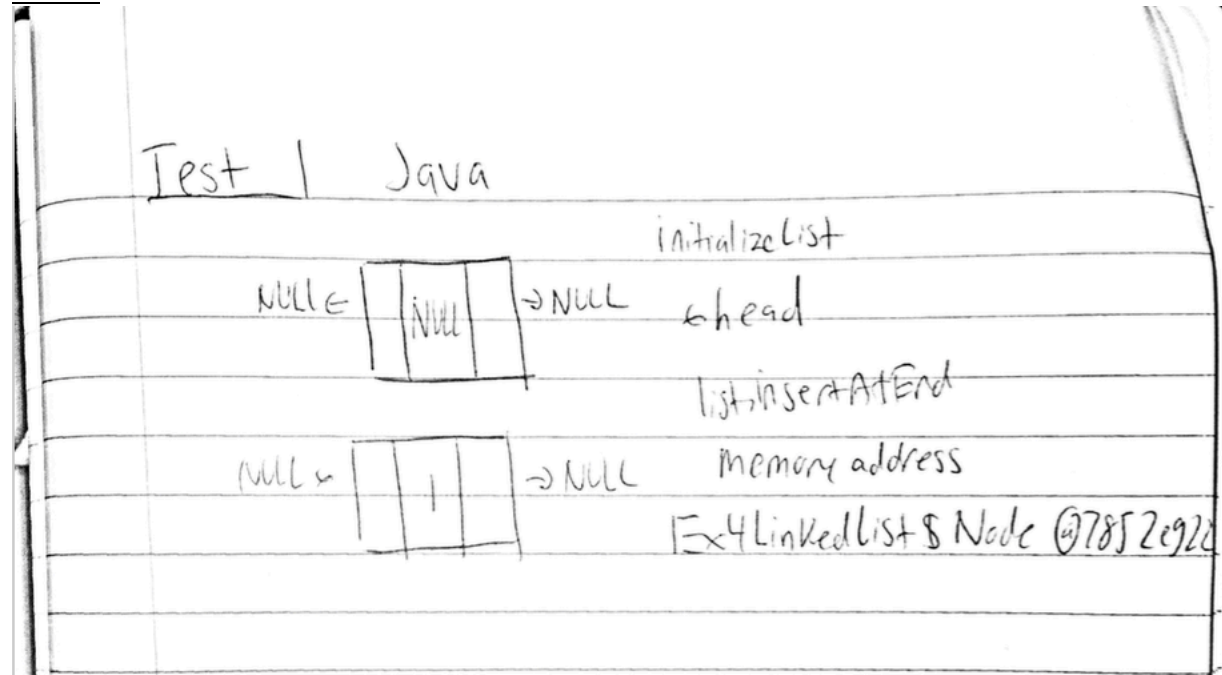 Test 1 Java
initializeList
NULL ← NULL → NULL ← head
list.insertAtEnd
NULL ← 1 → NULL memory address
Ex4LinkedList$Node@7852e922